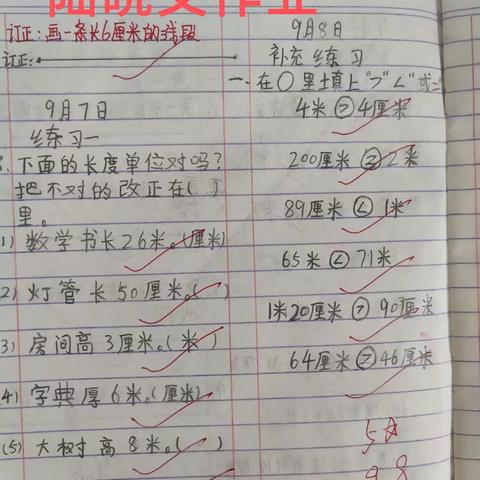 订正:画一条长6厘米的线段
订正:
9月7日
练习一
3.下面的长度单位对吗?
把不对的改正在( )
里。
1) 数学书长26米。(厘米)
2) 灯管长50厘米。( )
3) 房间高3厘米。(米)
4) 字典厚6米。(厘米)
(5) 大树高8米。( )
9月8日
补充练习
一.在○里填上">""<"或"="
4米>4厘米
200厘米=2米
89厘米<1米
65米<71米
1米20厘米>90厘米
64厘米>46厘米
5☆
9.8